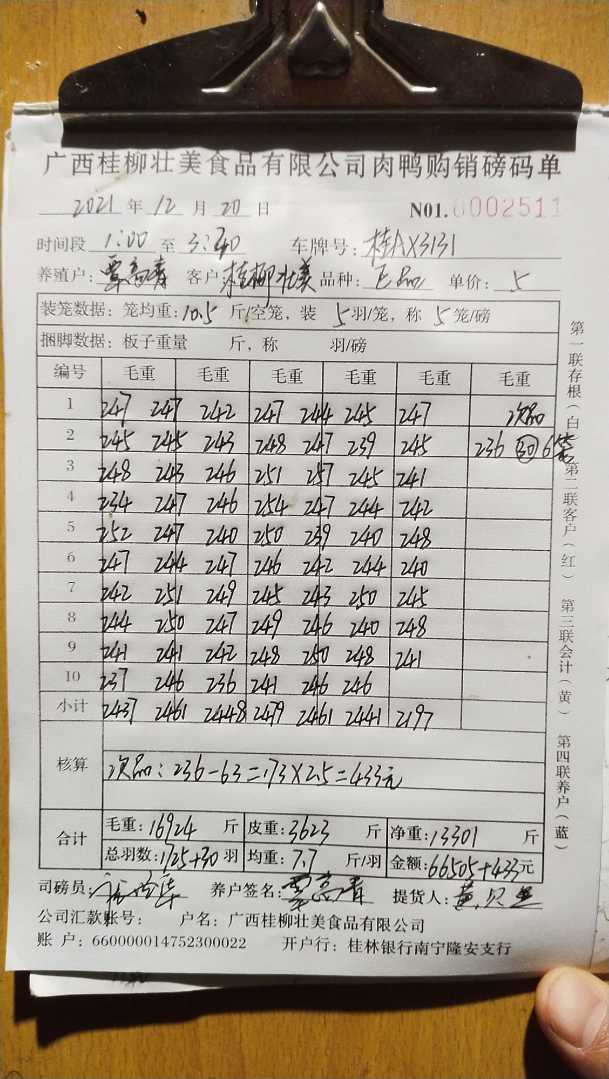 广西桂柳壮美食品有限公司肉鸭购销磅码单
2021年12月20日 N01.0002511
时间段 1:00 至 3:40 车牌号: 桂AX3131
养殖户: 覃高青 客户 桂柳壮美 品种: 正品 单价: 5
装笼数据: 笼均重: 10.5 斤/空笼, 装 5 羽/笼, 称 5 笼/磅
捆脚数据: 板子重量 斤, 称 羽/磅
编号 毛重 毛重 毛重 毛重 毛重 毛重
1 247 247 242 247 244 245 247 次品
2 245 245 243 248 247 239 245 236 30 6笼
3 248 243 246 251 257 245 241
4 234 247 246 254 247 244 242
5 252 247 240 250 239 240 248
6 247 244 247 246 242 244 240
7 242 251 249 245 243 250 245
8 244 250 247 249 246 240 248
9 241 241 242 248 250 248 241
10 237 246 236 241 246 246
小计 2437 2461 2448 2479 2461 2441 2197
核算 次品: 236-63=173×2.5=433元
合计 毛重: 16924 斤 皮重: 3623 斤 净重: 13301 斤
总羽数: 1725+30 羽 均重: 7.7 斤/羽 金额: 66505+433元
司磅员: 养户签名: 覃高青 提货人: 黄
公司汇款账号: 户名: 广西桂柳壮美食品有限公司
账 户: 660000014752300022 开户行: 桂林银行南宁隆安支行
第一联存根(白) 第二联客户(红) 第三联会计(黄) 第四联养户(蓝)